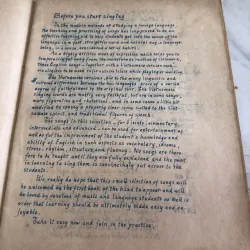 Before you start singing
In the modern methods of studying a foreign language,
the learning and practising of songs has long proved to be an
effective teaching aid to help students get into the song of the
language in a fast, stressless and natural way - language
being, in a sense, considered a set of habits.
As a highly artistic mode of expression which helps you be
temporarily far away from the
these English songs - together with a Vietnamese version - are
available to be used in or outside class while playing or
The Vietnamese versions, due to the many linguistic and
cultural differences between the two languages, prove of a certain
degree of enlightenment to the original text. The Vietnamese
singing words are mostly very faithful, but yet in some songs,
more figurative and rhetorical, and in some cases a little bit
modified to convey in properly clear tones suited to the Viet-
namese spirit and traditional figures of speech.
The songs in this selection - for 3 levels: elementary,
intermediate and advanced - can be used for entertainment as
well as for the improvement of the student's knowledge and
ability of English in such aspects as vocabulary, idioms,
stress, rhythm, structure and fluency. No songs are there-
fore to be taught until they are fully explained and the most
in learning to sing them is convincingly put across to the
students.
We really do hope that this small selection of songs will
be welcomed as the first book of the kind to appear and will
be loved by devotees of music and language students as well in
order that learning should be ultimately made easy and en-
joyable.
Take it easy now and join in the practice.